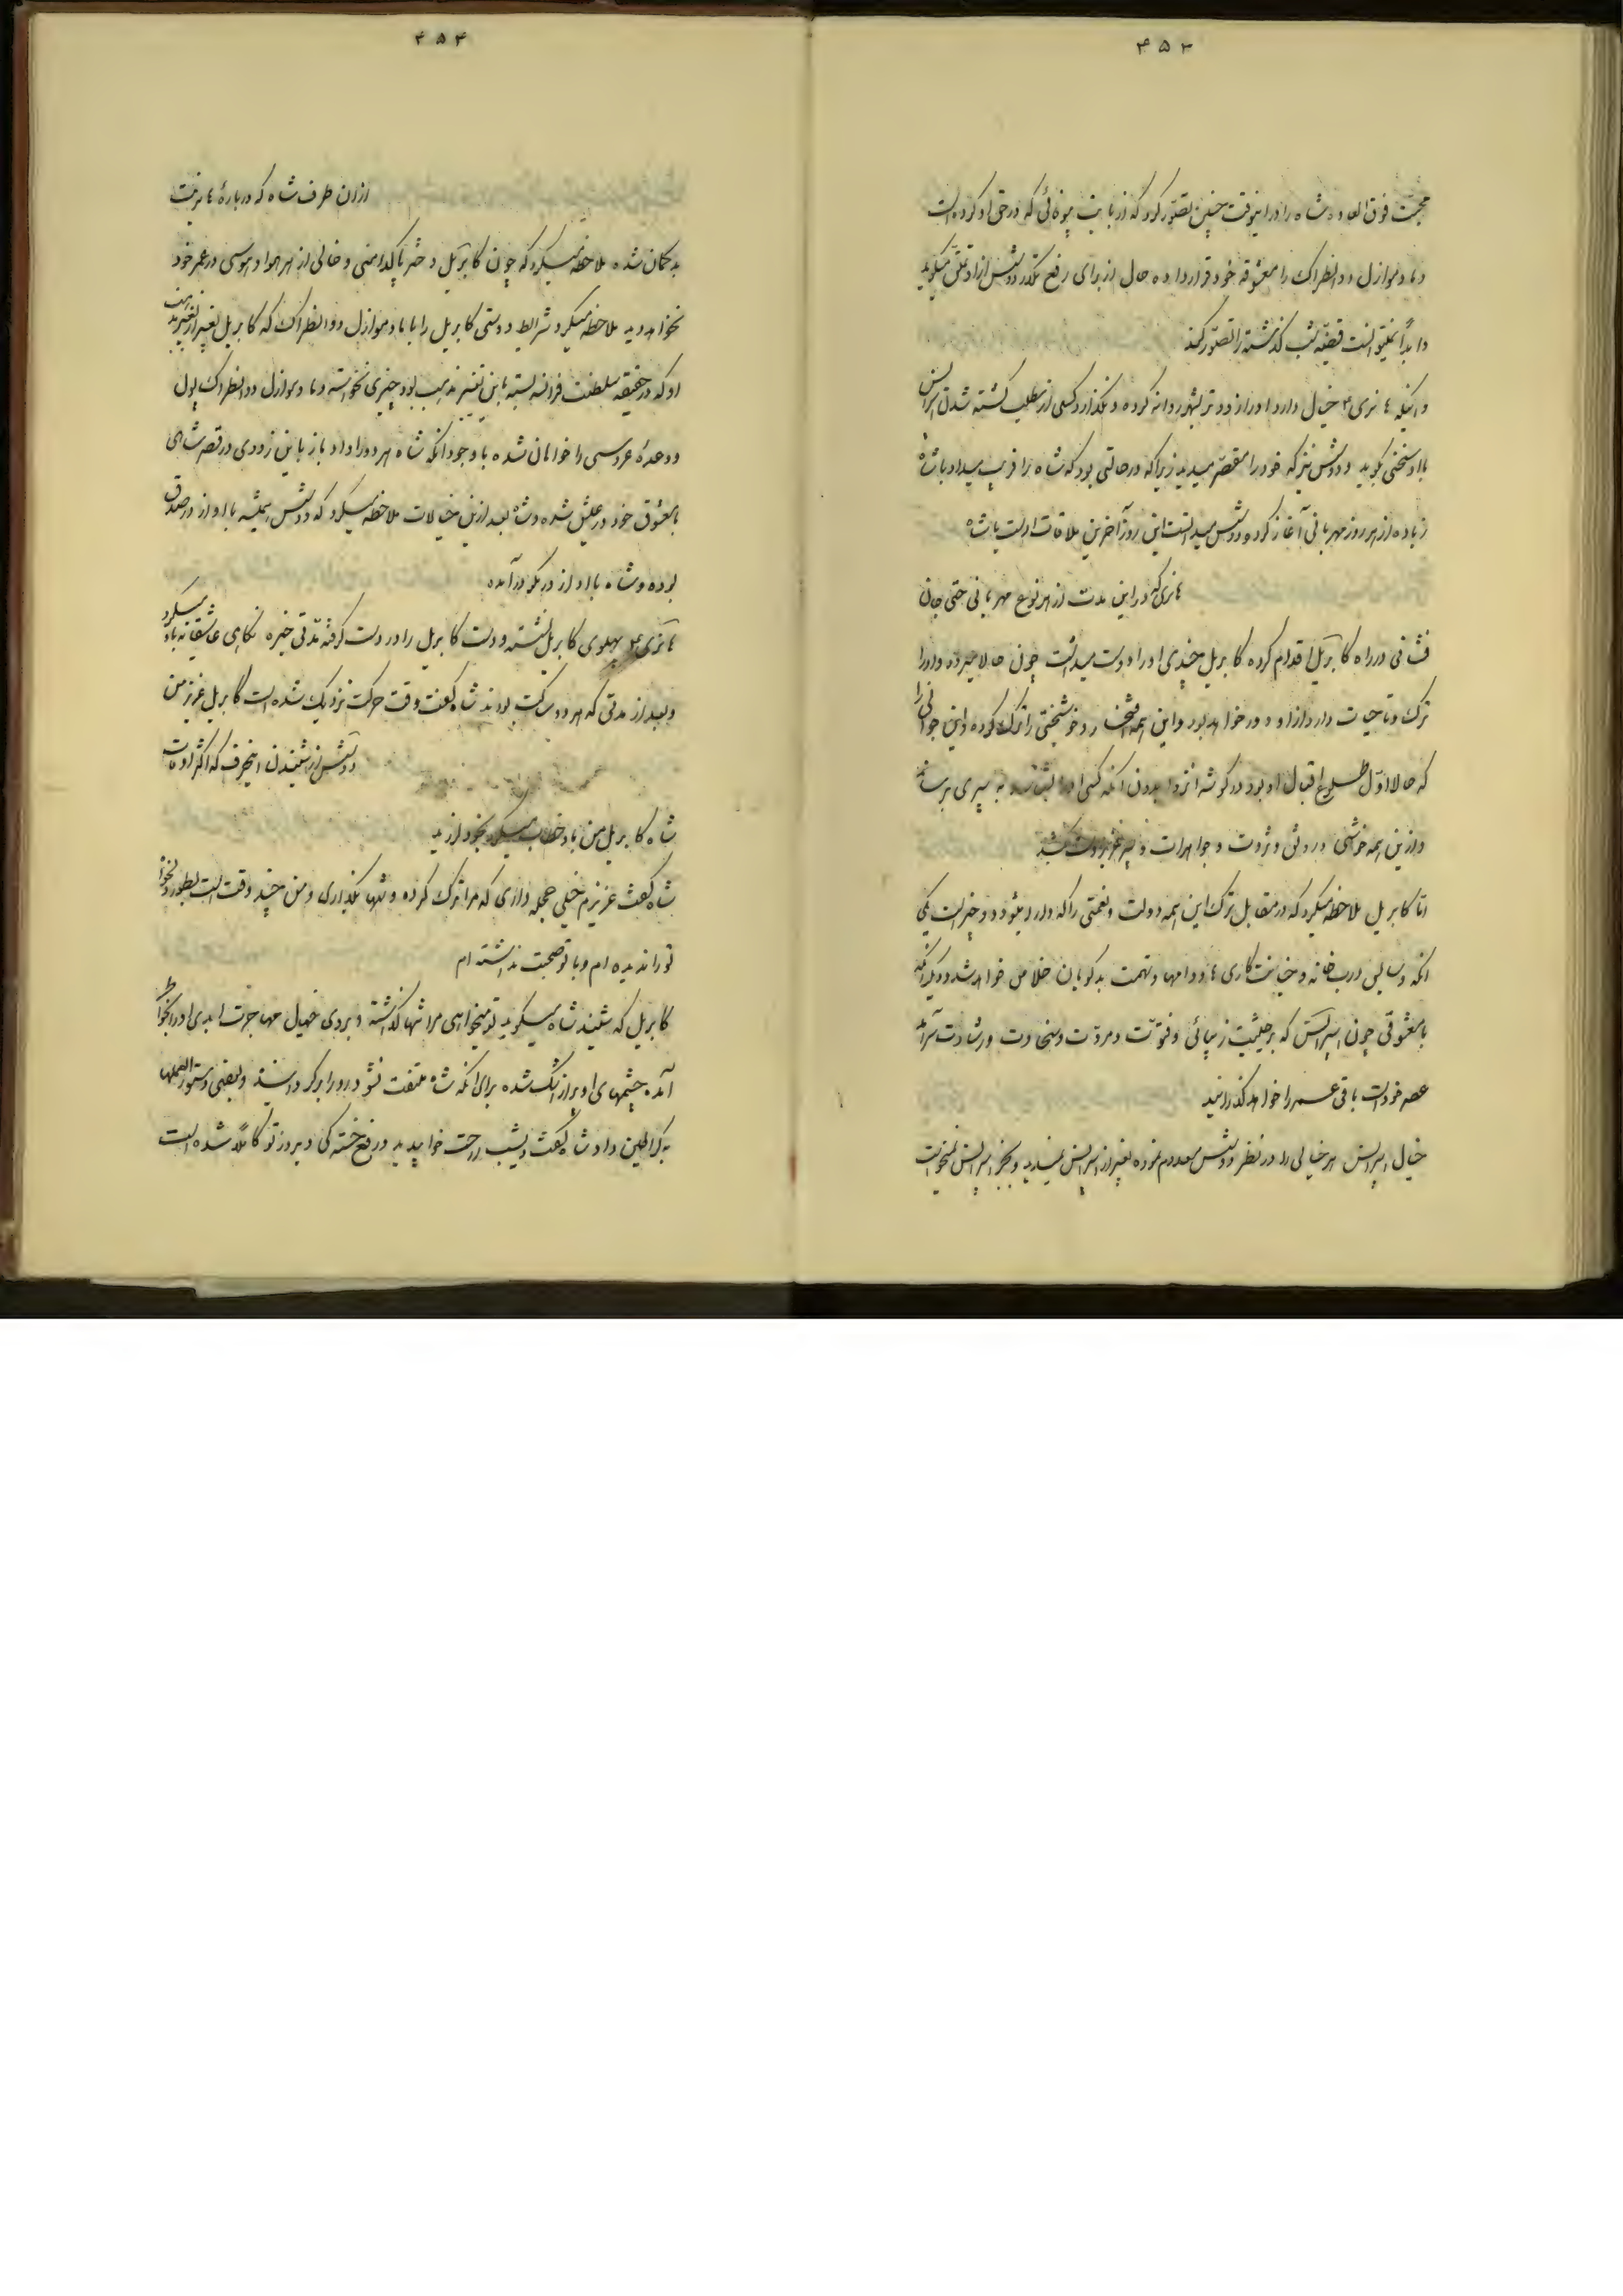 ۴۵۳
محبت فوق العاده شاه را در اینوقت چنین تصور کرد که از بابت بیوفائی که در حق او کرده است
و مادموازل دوانطراک را معشوقه خود قرار داده حال از برای رفع تکدر دوئش از او تملق میگوید
و ابداً نمیتوانست قضیه شب گذشته را تصور کند
و اینکه هانری ۴ خیال دارد او را زودتر بشهر روانه کرده و نگذارد کسی از مطلب کشته شدن اسپرانس
با او سخنی بگوید و دوئش نیز که خود را مقصر میدید زیرا که در حالتی بود که شاه را فریب میداد با شاه
زیاده از هر روز مهربانی آغاز کرده دوئش میدانست این روز آخرین ملاقات اوست با شاه
هانری که در این مدت از هر نوع مهربانی حتی جان
فشانی در راه کابریل اقدام کرده کابریل بحدی او را دوست میداشت چون حالا میرود و او را
ترک و تا حیات دارد از او دور خواهد بود و این همه افتخار و خوشبختی را ترک کرده و این جوانی را
که حالا اول طلوع اقبال او بود در گوشه انزوا بدون آنکه کسی او را بشناسد به پیری برساند
و از این همه خوشی و رونق و ثروت و جواهرات و پسر عزیز دست کشد
اما کابریل ملاحظه میکرد که در مقابل ترک این همه دولت و نعمتی را که دارد میشود دو چیز است یکی
آنکه دسایس درب خانه و خیانت کاری ها و دامها و تهمت بدگویان خلاص خواهد شد و دیگر آنکه
با معشوقی چون اسپرانس که بر حیثیت زیبائی و فتوت و مروت و سخاوت و رشادت سرآمد
عصر خود است باقی عمر را خواهد گذرانید
خیال اسپرانس هر خیالی را در نظر دوئش معدوم نموده بغیر از اسپرانس نمیدید و بجز اسپرانس نمیخواست
۴۵۴
از آن طرف شاه که درباره هانریت
بدگمان شده ملاحظه میکرد که چون کابریل دختر پاکدامنی و خالی از هر هوا و هوسی در عمر خود
نخواهد دید ملاحظه میکرد شرایط دوستی کابریل را با مادموازل دوانطراک که کابریل بغیر از
او که در حقیقه سلطنت فرانسه بسته باین تغییر مذهب بود چیزی نخواسته و مادموازل دوانطراک پول
و وعده عروسی را خواهان شده با وجود آنکه شاه هر دو را داد باز باین زودی در قصر شاهی
با معشوق خود در عیش شده و شاه بعد از این خیالات ملاحظه میکرد که دوئش همیشه با او از در صدق
بوده و شاه با او از در مکر درآمده
هانری ۴ پهلوی کابریل نشسته و دست کابریل را در دست گرفته مدتی خیره نگاهی عاشقانه باو میکرد
و بعد از مدتی که هر دو ساکت بودند شاه گفت وقت حرکت نزدیک شده است کابریل عزیز من
دوئش از شنیدن اینحرف که اکثر اوقات
شاه کابریل من باو خطاب میکرد بخود لرزید
شاه گفت عزیزم خیلی عجله داری که مرا ترک کرده و تنها بگذاری و من چند وقت است بطور دلخواه
تو را ندیده ام و با تو صحبت نداشته ام
کابریل که شنید شاه میگوید تو میخواهی مرا تنها گذاشته و بروی خیال مهاجرت ابدی او را بخاطر
آمده چشمهای او پر از اشک شده برای آنکه شاه ملتفت نشود رو را برگردانید و بعضی دستورالعملها
به کراطین داد شاه گفت دیشب راحت خوابیدید و رفع خستگی دیروز تو کاملاً شده است